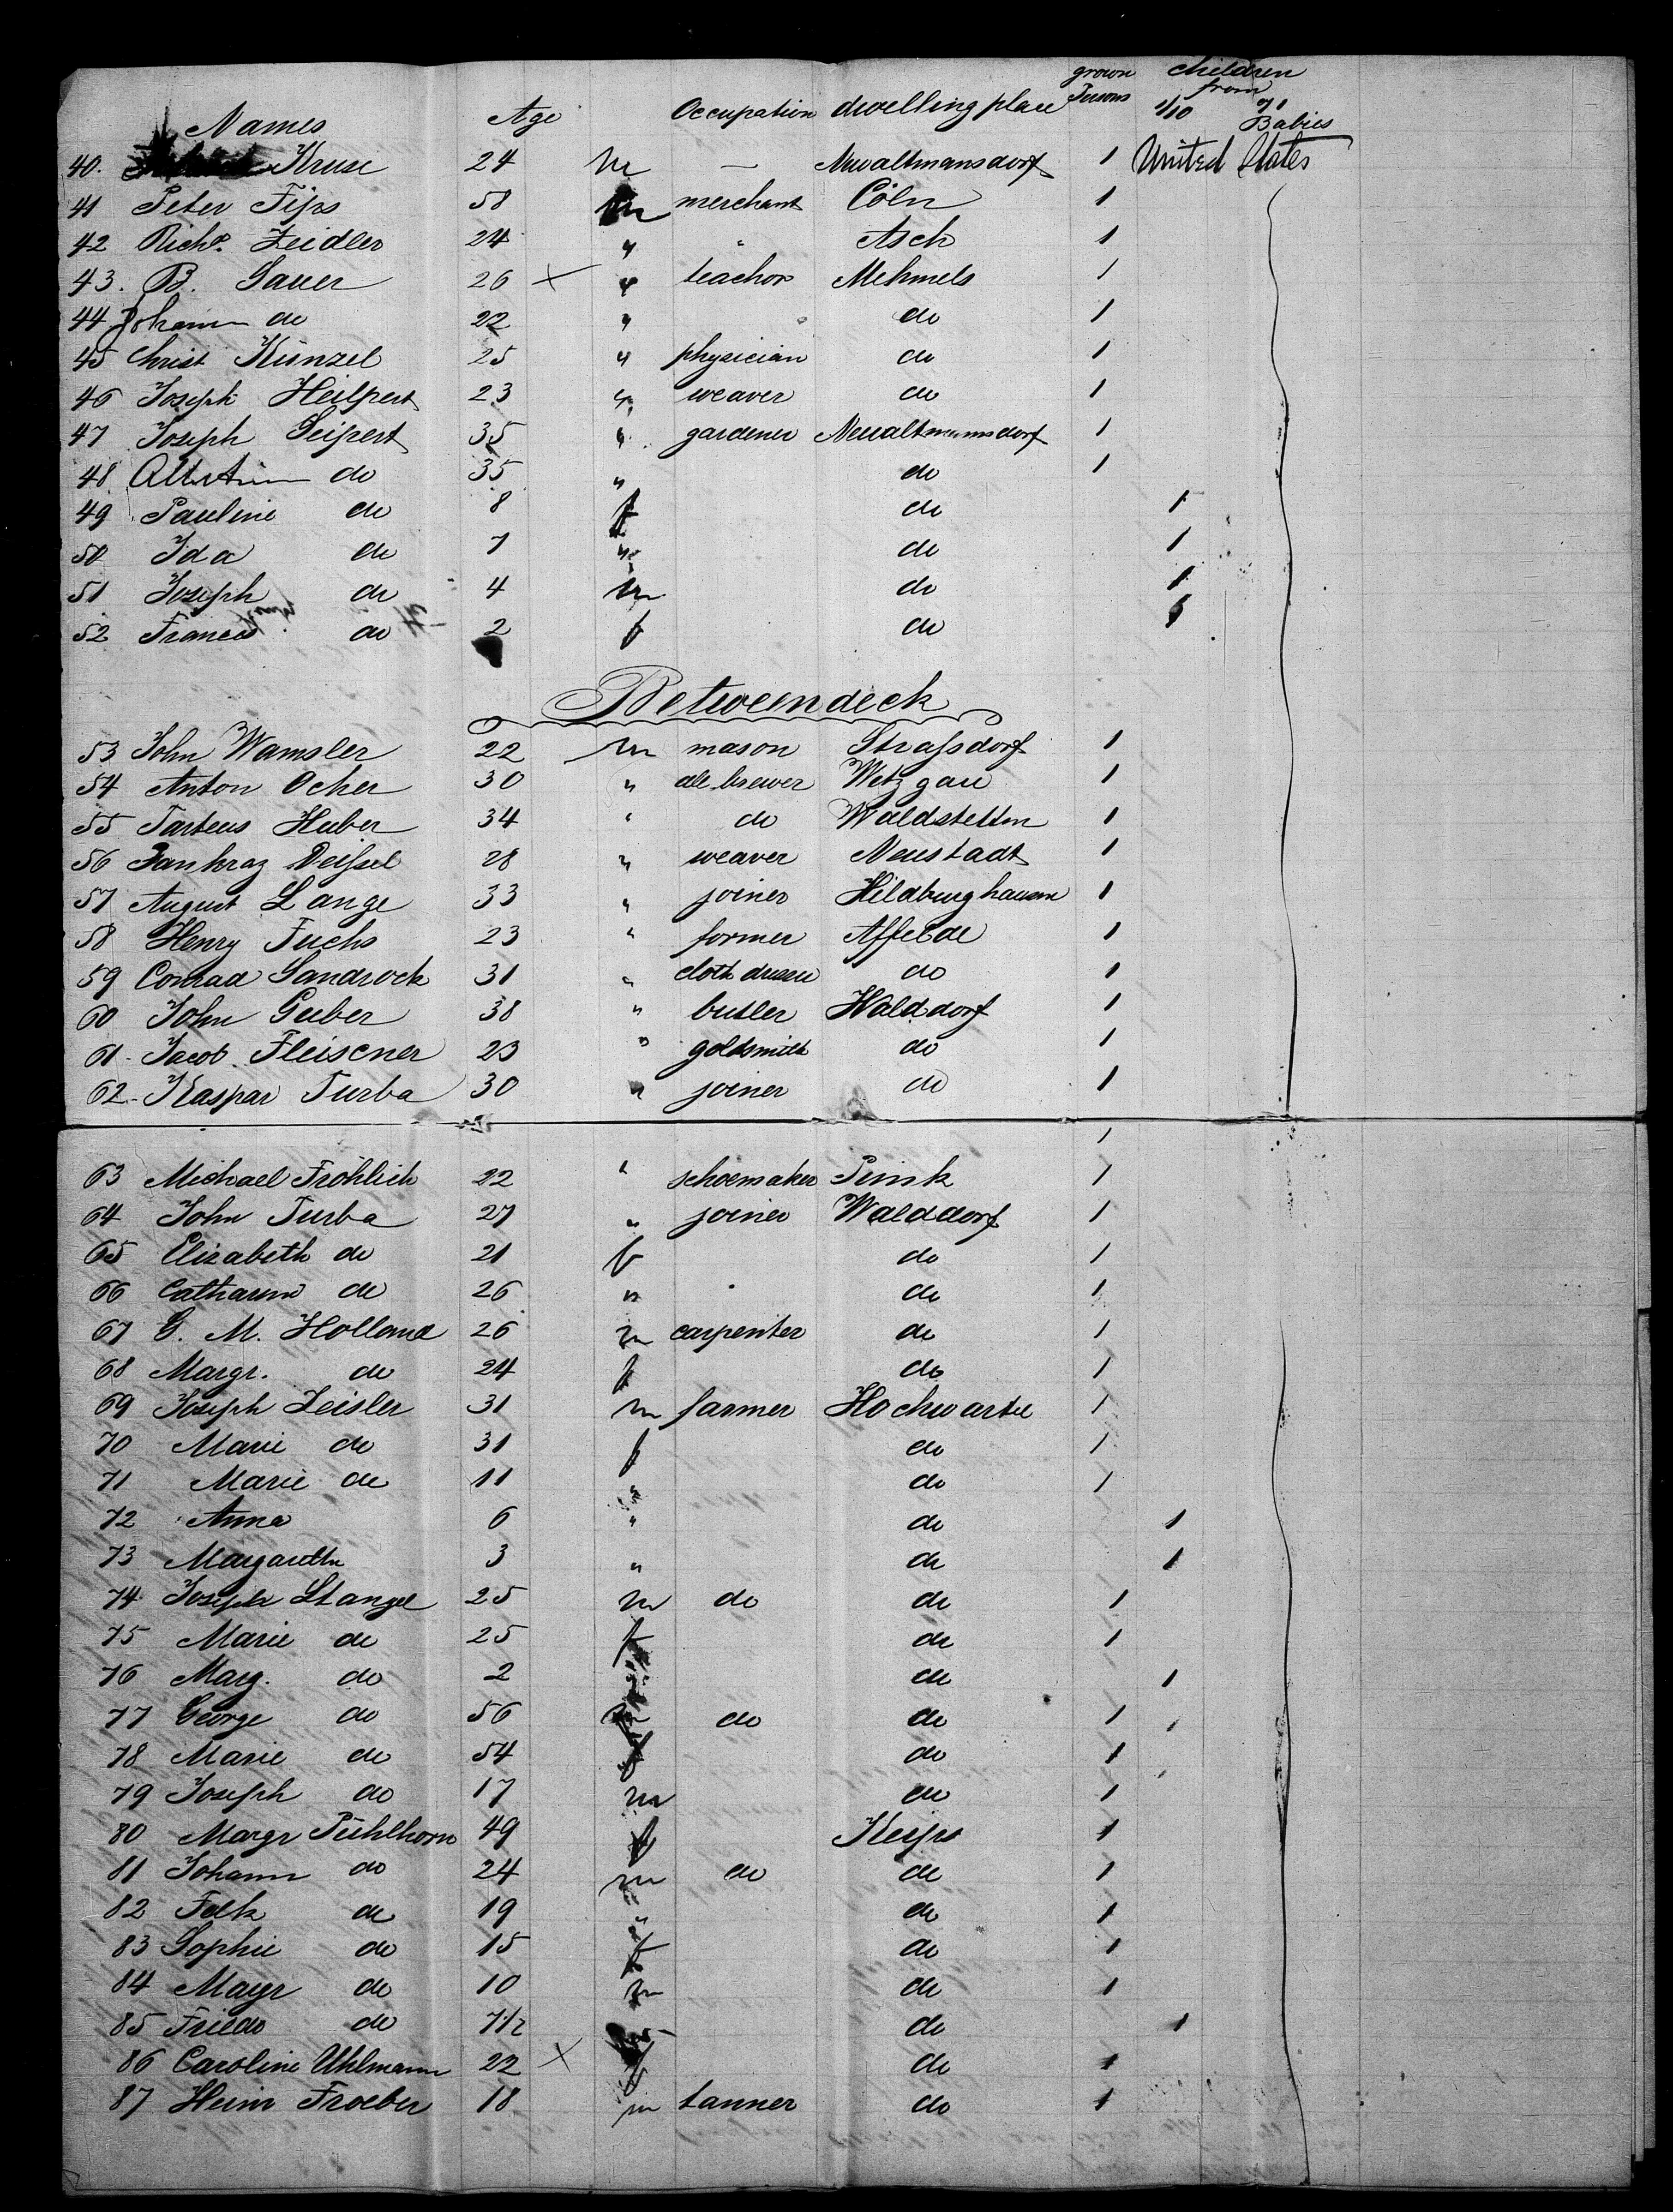 Names Age Occupation dwelling place grown Persons children from 1/10 %1 Babies
40. Kruse 24 m — Neualtmansdorf 1 United States
41 Peter Fips 58 m merchant Cöln 1
42 Richd. Zeidler 24 " " Asch 1
43. B. Sauer 26 × " teacher Mehmels 1
44 Johann do 22 " do 1
45 Christ Künzel 25 " physician do 1
46 Joseph Heilpert 23 " weaver do 1
47 Joseph Seipert 35 " gardener Neualtmannsdorf 1
48 do 35 " do 1
49 Pauline do 8 f do 1
50 Ida do 7 " do 1
51 Joseph do 4 m do 1
52 do 2 f do 1
Betweendeck
53 John Wamsler 22 m mason Straſsdorf 1
54 Anton Ocher 30 " ale brewer Wetzgau 1
55 Tarteus Huber 34 " do Waldstetten 1
56 Pankraz Deiſsel 28 " weaver Neustadt 1
57 August Lange 33 " joiner Hildburghausen 1
58 Henry Fuchs 23 " former Affelde 1
59 Conrad Sandrock 31 " cloth dresser do 1
60 John Guber 38 " butler Walddorf 1
61 - Jacob Fleiscner 23 " goldsmith do 1
62 - Kaspar Turba 30 " joiner do 1
1
63 Michael Fröhlich 22 " schoemaker Pirnk 1
64 John Turba 27 " joiner Walddorf 1
65 Elizabeth do 21 f do 1
66 Catharine do 26 " do 1
67 G. M. Holland 26 m carpenter do 1
68 Margr. do 24 f do 1
69 Joseph Zeisler 31 m farmer Hochwartel 1
70 Marie do 31 f do 1
71 Marie do 11 " do 1
72 Anna 6 " do 1
73 Margareth 3 " do 1
74 Joseph Stangel 25 m do do 1
75 Marie do 25 f do 1
76 Marg. do 2 " do 1
77 George do 56 m do do 1
78 Marie do 54 f do 1
79 Joseph do 17 m do 1
80 Margr Pühlhorn 49 f Keips 1
81 Johann do 24 m do do 1
82 Felk do 19 " do 1
83 Sophie do 15 f do 1
84 Mayr do 10 m do 1
85 Friedr do 7 1/2 do 1
86 Caroline Uhlmann 22 × f do 1
87 Heinr Froeber 18 m tanner do 1